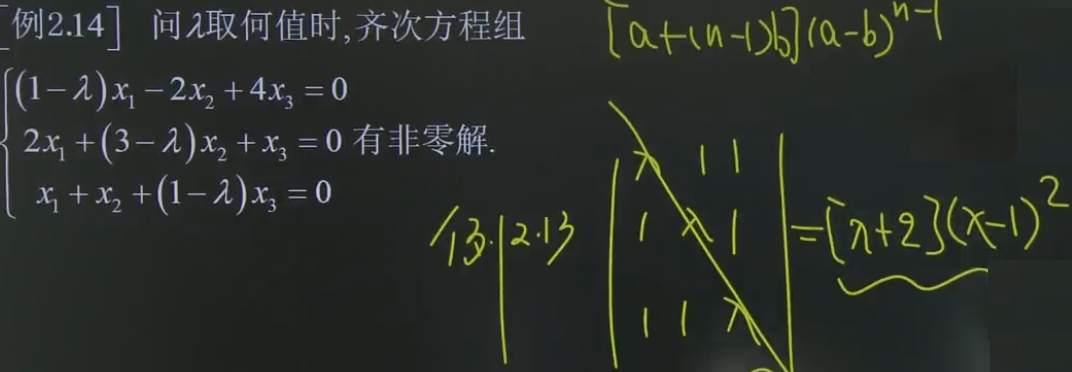 [例2.14] 问λ取何值时,齐次方程组
(1-λ)x₁-2x₂+4x₃=0
2x₁+(3-λ)x₂+x₃=0 有非零解.
x₁+x₂+(1-λ)x₃=0
[a+(n-1)b](a-b)ⁿ⁻¹
例2.13
λ 1 1
1 λ 1
1 1 λ
=[λ+2](λ-1)²